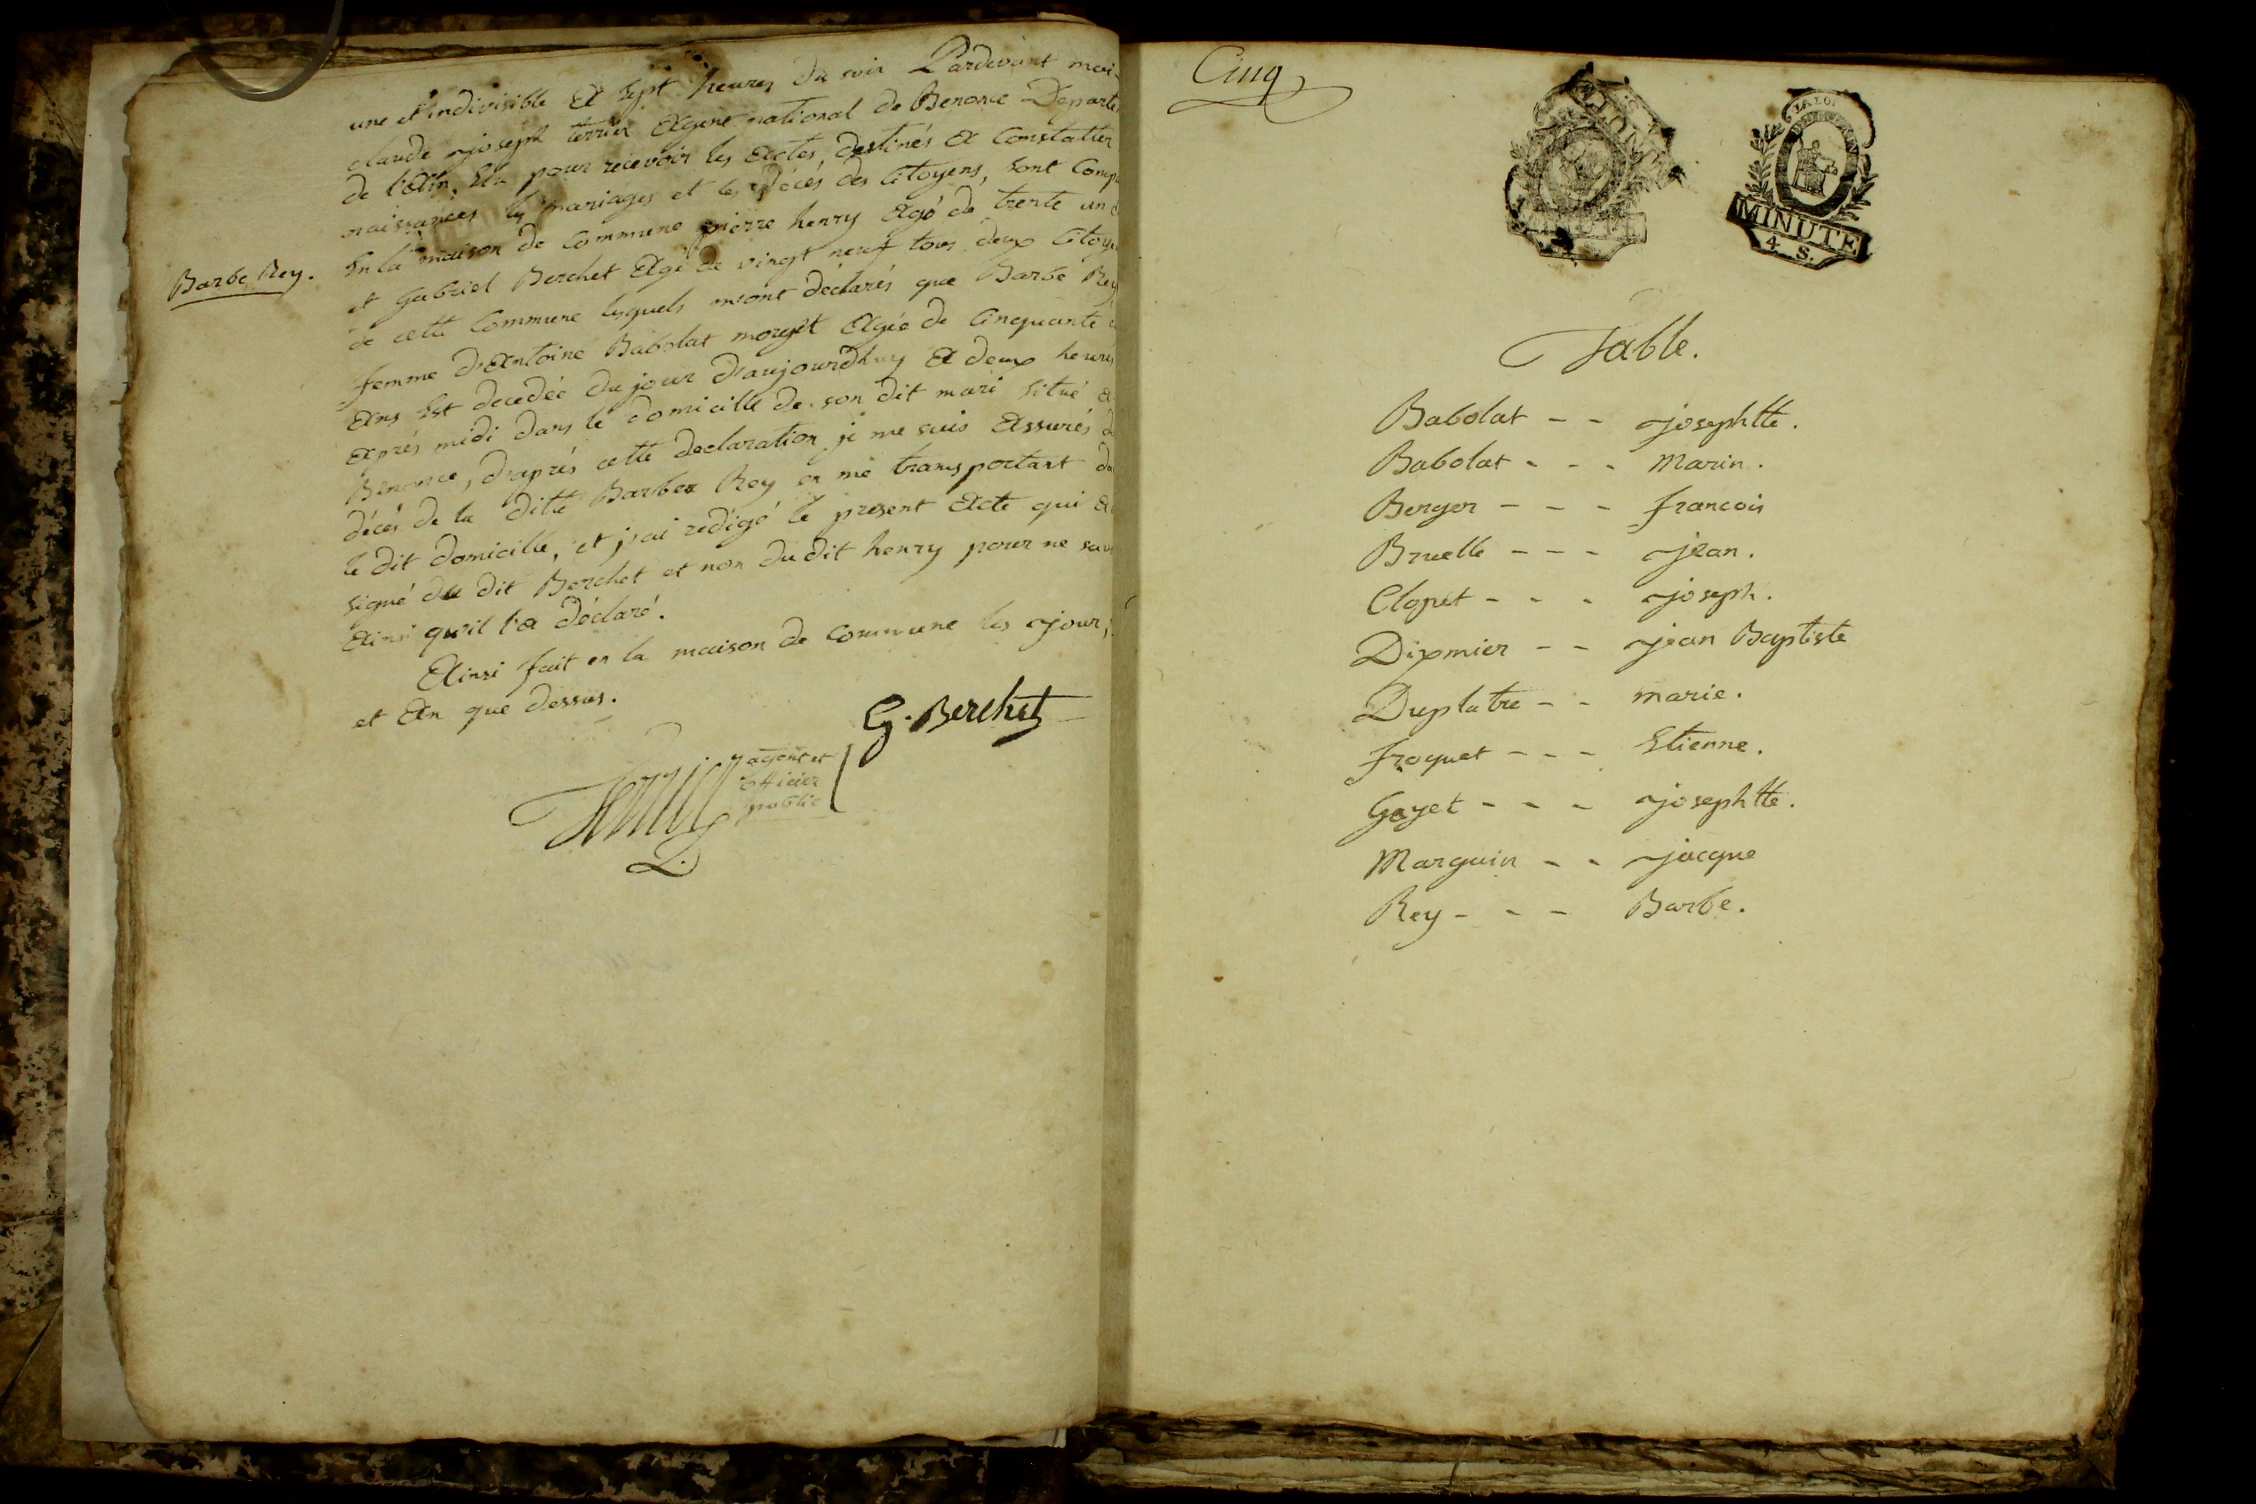 une et indivisible Et Sept heures du soir Pardevant moi
claude joseph terrier Agent national de Benonce Departe
de l'Ain, Elu pour recevoir les Actes, destinés A Constatter
naissances les mariages et les décés des Citoyens, sont Comp
En la maison de Commune pierre henry Agé de trente un
et Gabriel Berchet Agé de vingt neuf tous deux Citoye
Barbe Rey.
de cette Commune lesquels m'ont déclarés que Barbe Rey
femme d'Antoine Babolat morgët Agée de Cinquante
Ans Est decedée du jour d'aujourdhuy A deux heures
Après midi dans le domicille de son dit mari Situé A
Benonce, d'aprés cette declaration je me suis Assurés d
décés de la ditte Barbea Rey en me transportant da
le dit domicille, et j'ai redigé le present Acte qui A
signé du dit Berchet et non du dit henry pour ne sav
Ainsi qu'il l'a déclaré.
Ainsi fait en la maison de Commune les jour,
et An que dessus.
G. Berchet
Terrier
agent et
officier
public
Cinq
LA LOI
MINUTE
4. S.
Table.
Babolat - - josephtte.
Babolat - - - Marin.
Berger - - - francois
Bruelle - - - jean.
Clopet - - - joseph.
Dipmier - - jean Baptiste
Duplatre - - marie.
froquet - - - Etienne.
Gayet - - - josephtte.
Marguin - - jacque
Rey - - - Barbe.